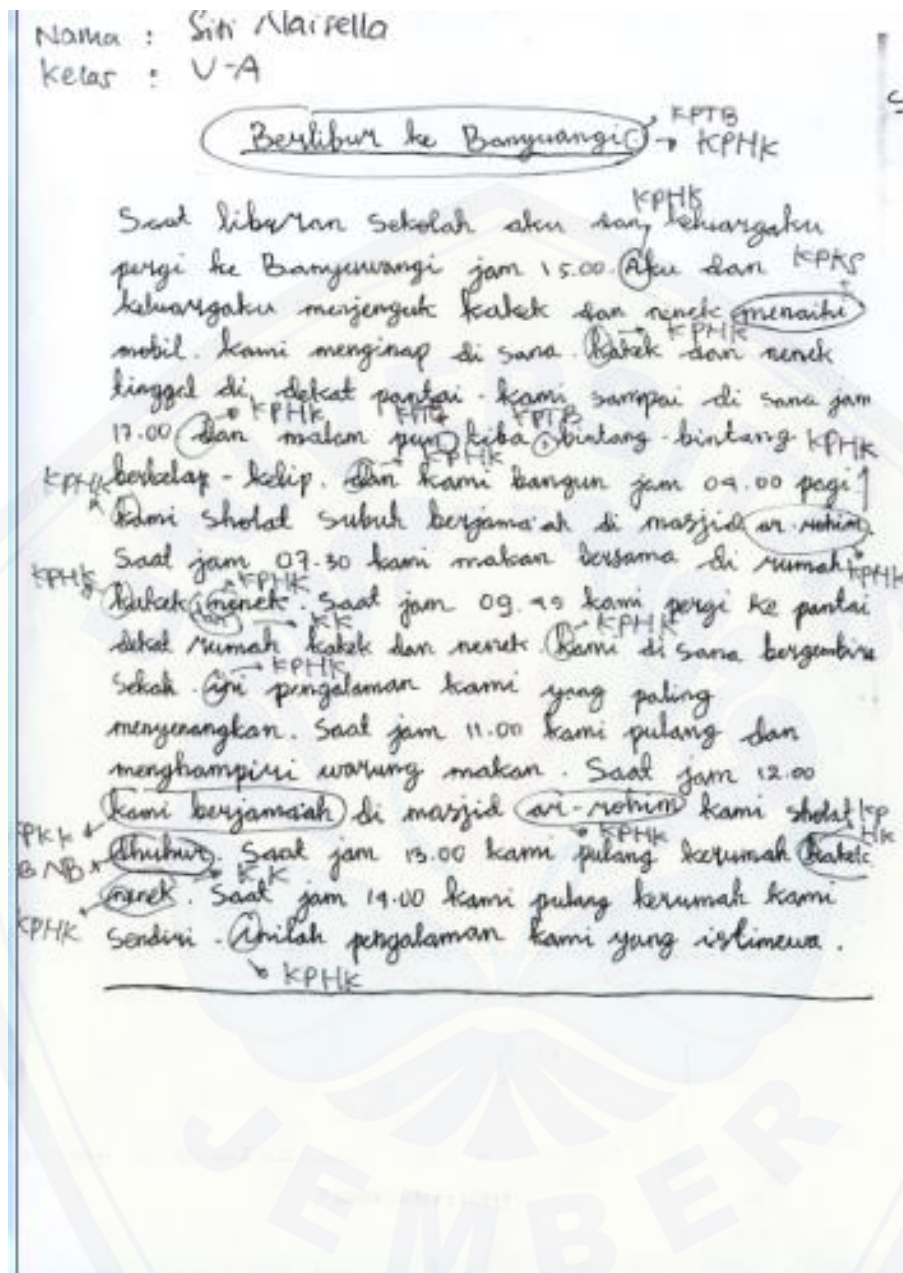 Nama : Siti Naisella
Kelas : V-A
KPTB
Berlibur ke Banyuangi. KPHK
KPHK
Saat liburan sekolah aku dan keluargaku
pergi ke Banyuwangi jam 15.00. Aku dan KPKS
keluargaku menjenguk kakek dan nenek menaihi
KPHK
mobil. kami menginap di sana. kakek dan nenek
tinggal di dekat pantai. kami sampai di sana jam
KPHK KPTB
17.00 dan malam pun tiba. bintang-bintang KPHK
KPHK
KPHK berkelap-kelip. dan kami bangun jam 04.00 pagi
kami sholat subuh berjama'ah di masjid ar-rohim.
Saat jam 07.30 kami makan bersama di rumah KPHK
KPHK KPHK
kakek, nenek. Saat jam 09.45 kami pergi ke pantai
KK KPHK
dekat rumah kakek dan nenek. kami di sana bergembira
KPHK
sekali. ini pengalaman kami yang paling
menyenangkan. Saat jam 11.00 kami pulang dan
menghampiri warung makan. Saat jam 12.00
kami berjamaah di masjid ar-rohim kami sholat KP
PKK KPHK HK
BNB dhuhur. Saat jam 13.00 kami pulang kerumah kakek
KK
nenek. Saat jam 14.00 kami pulang kerumah kami
KPHK sendiri. inilah pengalaman kami yang istimewa.
KPHK
JEMBER